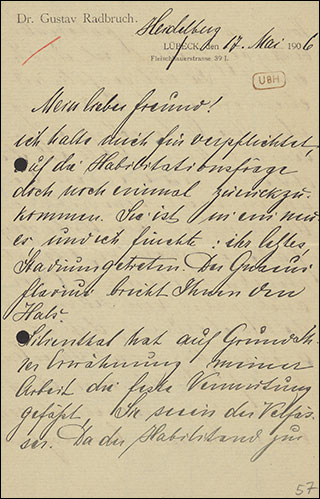 Dr. Gustav Radbruch.
Heidelberg
LÜBECK, den 17. Mai 1906
Fleischhauerstrasse 39 I.
UBH
Mein lieber Freund!
ich halte mich für verpflichtet,
auf die Habilitationsfrage
doch noch einmal zurückzu-
kommen. Sie ist in ein neu-
es, und ich fürchte: ihr letztes
Stadium getreten. Der Gnaeus
Flavius bricht Ihnen den
Hals.
Lilienthal hat auf Grund Ih-
rer Erwähnung meiner
Arbeit die feste Vermutung
gefaßt, Sie seien der Verfas-
ser. Da der Habilitand zur
57